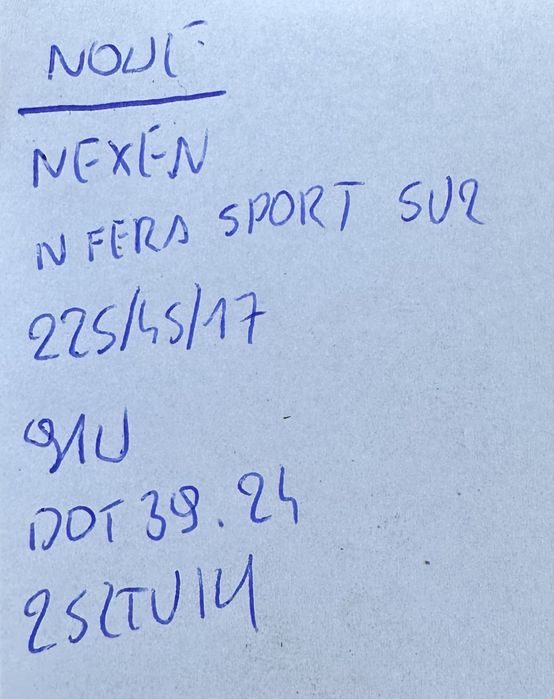 NOVÉ
NEXEN
N FERA SPORT SU2
225/45/17
91W
DOT 39.24
2SLTUIY